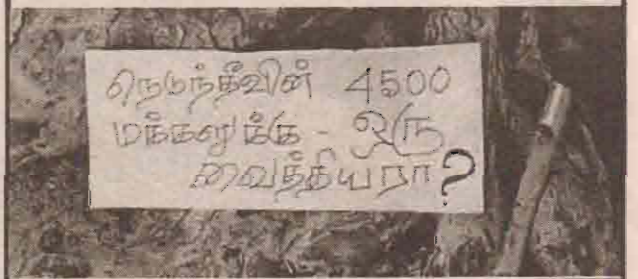 நெடுந்தீவின் 4500
மக்களுக்கு - ஒரு
வைத்தியரா?